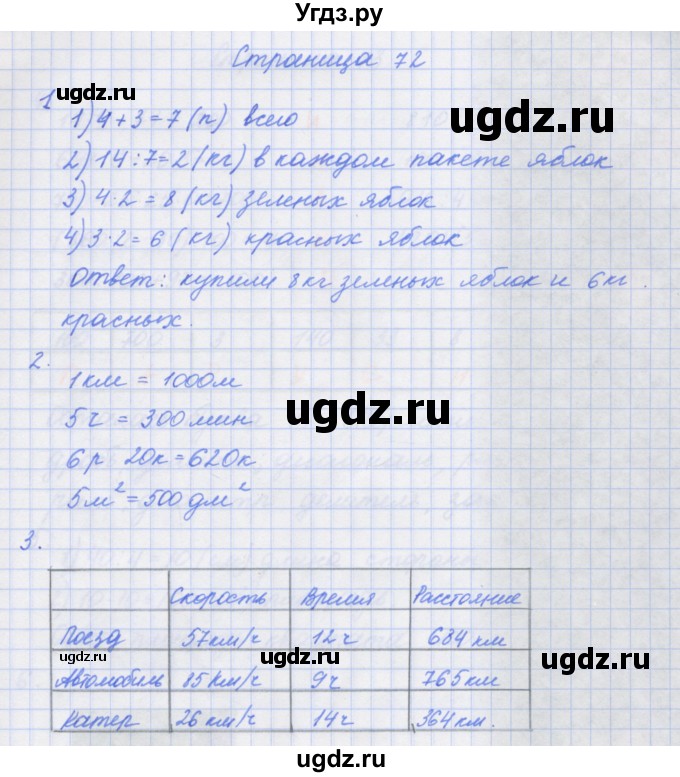 Угдз.ру
Страница 72
1
ugdz.ru
1) 4 + 3 = 7 (п) всего
ugdz.ru
2) 14 : 7 = 2 (кг) в каждом пакете яблок
3) 4 · 2 = 8 (кг) зеленых яблок
4) 3 · 2 = 6 (кг) красных яблок
Ответ: купили 8 кг зеленых яблок и 6 кг
красных.
2.
1 км = 1000 м
ugdz.ru
5 ч = 300 мин
6 р 20 к = 620 к
5 м² = 500 дм²
3.
Скорость Время Расстояние
Поезд 57 км/ч 12 ч 684 км
ugdz.ru
ugdz.ru
Автомобиль 85 км/ч 9 ч 765 км
Катер 26 км/ч 14 ч 364 км.
ugdz.ru